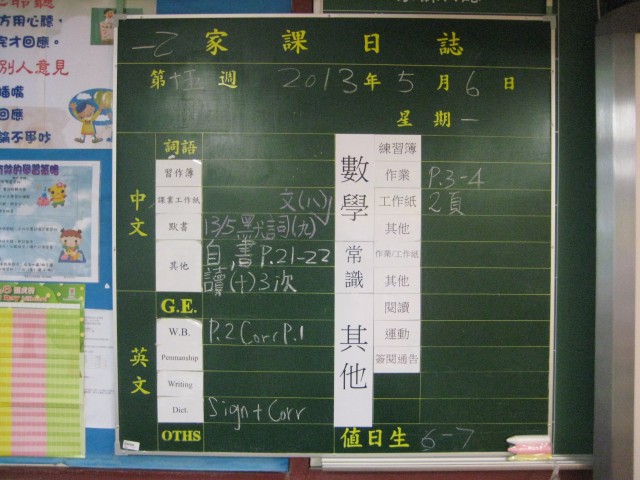 一乙 家課日誌
第十五週 2013年5月6日
星期一
中文
詞語
習作簿
課業工作紙 文(八)
默書 13/5默詞(九)
其他 自書P.21-22
讀(十)3次
英文
G.E.
W.B. P.2 Corr P.1
Penmanship
Writing
Dict. Sign + Corr
OTHS
數學
練習簿
作業 P.3-4
工作紙 2頁
其他
常識
作業/工作紙
其他
其他
閱讀
運動
簽閱通告
值日生 6-7
方用心聽，
完才回應。
別人意見
插嘴
回應
論不爭吵